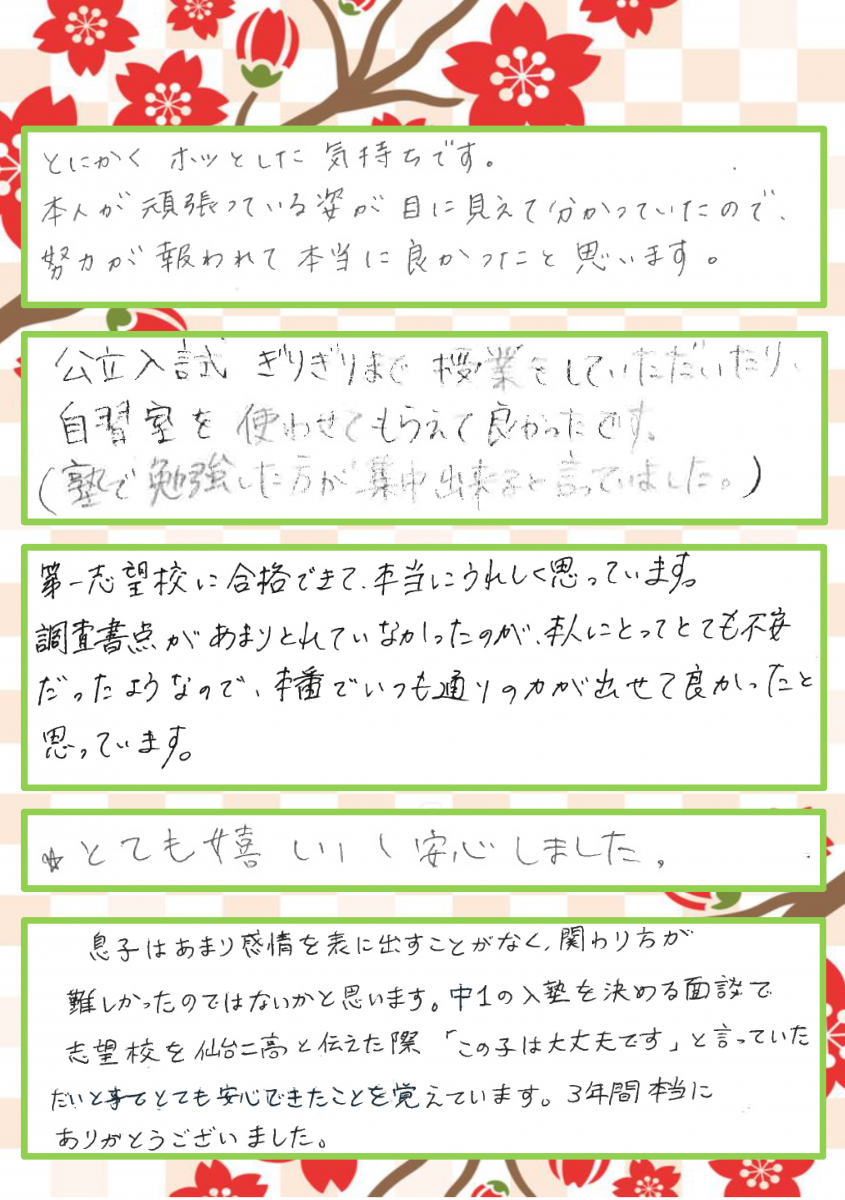 とにかく ホッとした 気持ちです。
本人が 頑張っている姿が 目に見えて分かっていたので、
努力が 報われて 本当に良かったと 思います。
公立入試 ぎりぎりまで 授業をしていただいたり、
自習室を 使わせてもらえて良かったです。
(塾で勉強した方が集中出来ると言っていました。)
第一志望校に合格できて、本当にうれしく思っています。
調査書点があまりとれていなかったのが、本人にとってとても不安
だったようなので、本番でいつも通りの力が出せて良かったと
思っています。
☆とても嬉しいし 安心しました。
息子はあまり感情を表に出すことがなく、関わり方が
難しかったのではないかと思います。中1の入塾を決める面談で
志望校を仙台二高と伝えた際 「この子は大丈夫です」と言っていた
だいとてとても安心できたことを覚えています。3年間本当に
ありがとうございました。